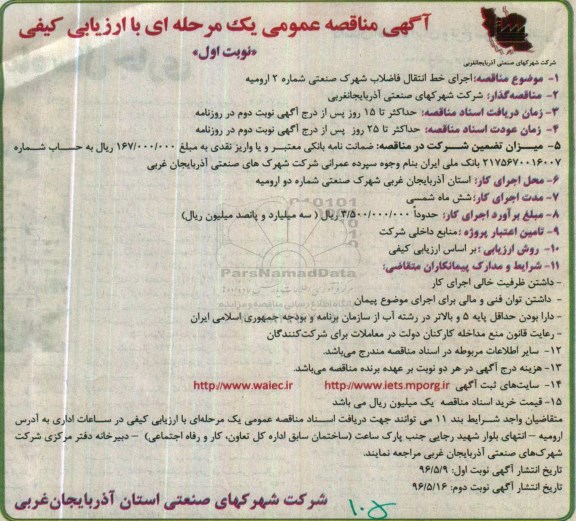 آگهی مناقصه عمومی یک مرحله ای با ارزیابی کیفی
«نوبت اول»
شرکت شهرکهای صنعتی آذربایجانغربی
۱- موضوع مناقصه:اجرای خط انتقال فاضلاب شهرک صنعتی شماره ۲ ارومیه
۲- مناقصه‌گذار: شرکت شهرکهای صنعتی آذربایجانغربی
۳- زمان دریافت اسناد مناقصه: حداکثر تا ۱۵ روز پس از درج آگهی نوبت دوم در روزنامه
۴- زمان عودت اسناد مناقصه: حداکثر تا ۲۵ روز پس از درج آگهی نوبت دوم در روزنامه
۵- میـزان تضمین شـرکت در مناقصه: ضمانت نامه بانکی معتبـر و یا واریز نقدی به مبلغ ۱۶۷/۰۰۰/۰۰۰ ریال به حساب شـماره
۲۱۷۵۶۷۰۰۱۶۰۰۷ بانک ملی ایران بنام وجوه سپرده عمرانی شرکت شهرک های صنعتی آذربایجان غربی
۶- محل اجرای کار: استان آذربایجان غربی شهرک صنعتی شماره دو ارومیه
۷- مدت اجرای کار: شش ماه شمسی
۸- مبلغ برآورد اجرای کار: حدوداً ۳/۵۰۰/۰۰۰/۰۰۰ ریال ( سه میلیارد و پانصد میلیون ریال)
۹- تامین اعتبار پروژه :منابع داخلی شرکت
۱۰- روش ارزیابی :بر اساس ارزیابی کیفی
۱۱- شرایط و مدارک پیمانکاران متقاضی:
- داشتن ظرفیت خالی اجرای کار
- داشتن توان فنی و مالی برای اجرای موضوع پیمان
- دارا بودن حداقل پایه ۵ و بالاتر در رشته آب از سازمان برنامه و بودجه جمهوری اسلامی ایران
- رعایت قانون منع مداخله کارکنان دولت در معاملات برای شرکت‌کنندگان
۱۲- سایر اطلاعات مربوطه در اسناد مناقصه مندرج می‌باشد.
۱۳- هزینه درج آگهی در هر دو نوبت بر عهده برنده مناقصه می‌باشد.
۱۴- سایت‌های ثبت آگهی http://www.iets.mporg.ir http://www.waiec.ir
۱۵- قیمت خرید اسناد مناقصه یک میلیون ریال می باشد
متقاضیان واجد شـرایط بند ۱۱ می توانند جهت دریافت اسـناد مناقصه عمومی یک مرحله‌ای با ارزیابی کیفی در سـاعات اداری به آدرس
ارومیه – انتهای بلوار شهید رجایی جنب پارک ساعت (ساختمان سابق اداره کل تعاون، کار و رفاه اجتماعی) – دبیرخانه دفتر مرکزی شرکت
شهرک‌های صنعتی آذربایجان غربی مراجعه نمایند.
تاریخ انتشار آگهی نوبت اول: ۹۶/۵/۹
تاریخ انتشار آگهی نوبت دوم: ۹۶/۵/۱۶
شرکت شهرکهای صنعتی استان آذربایجان‌غربی
ParsNamadData